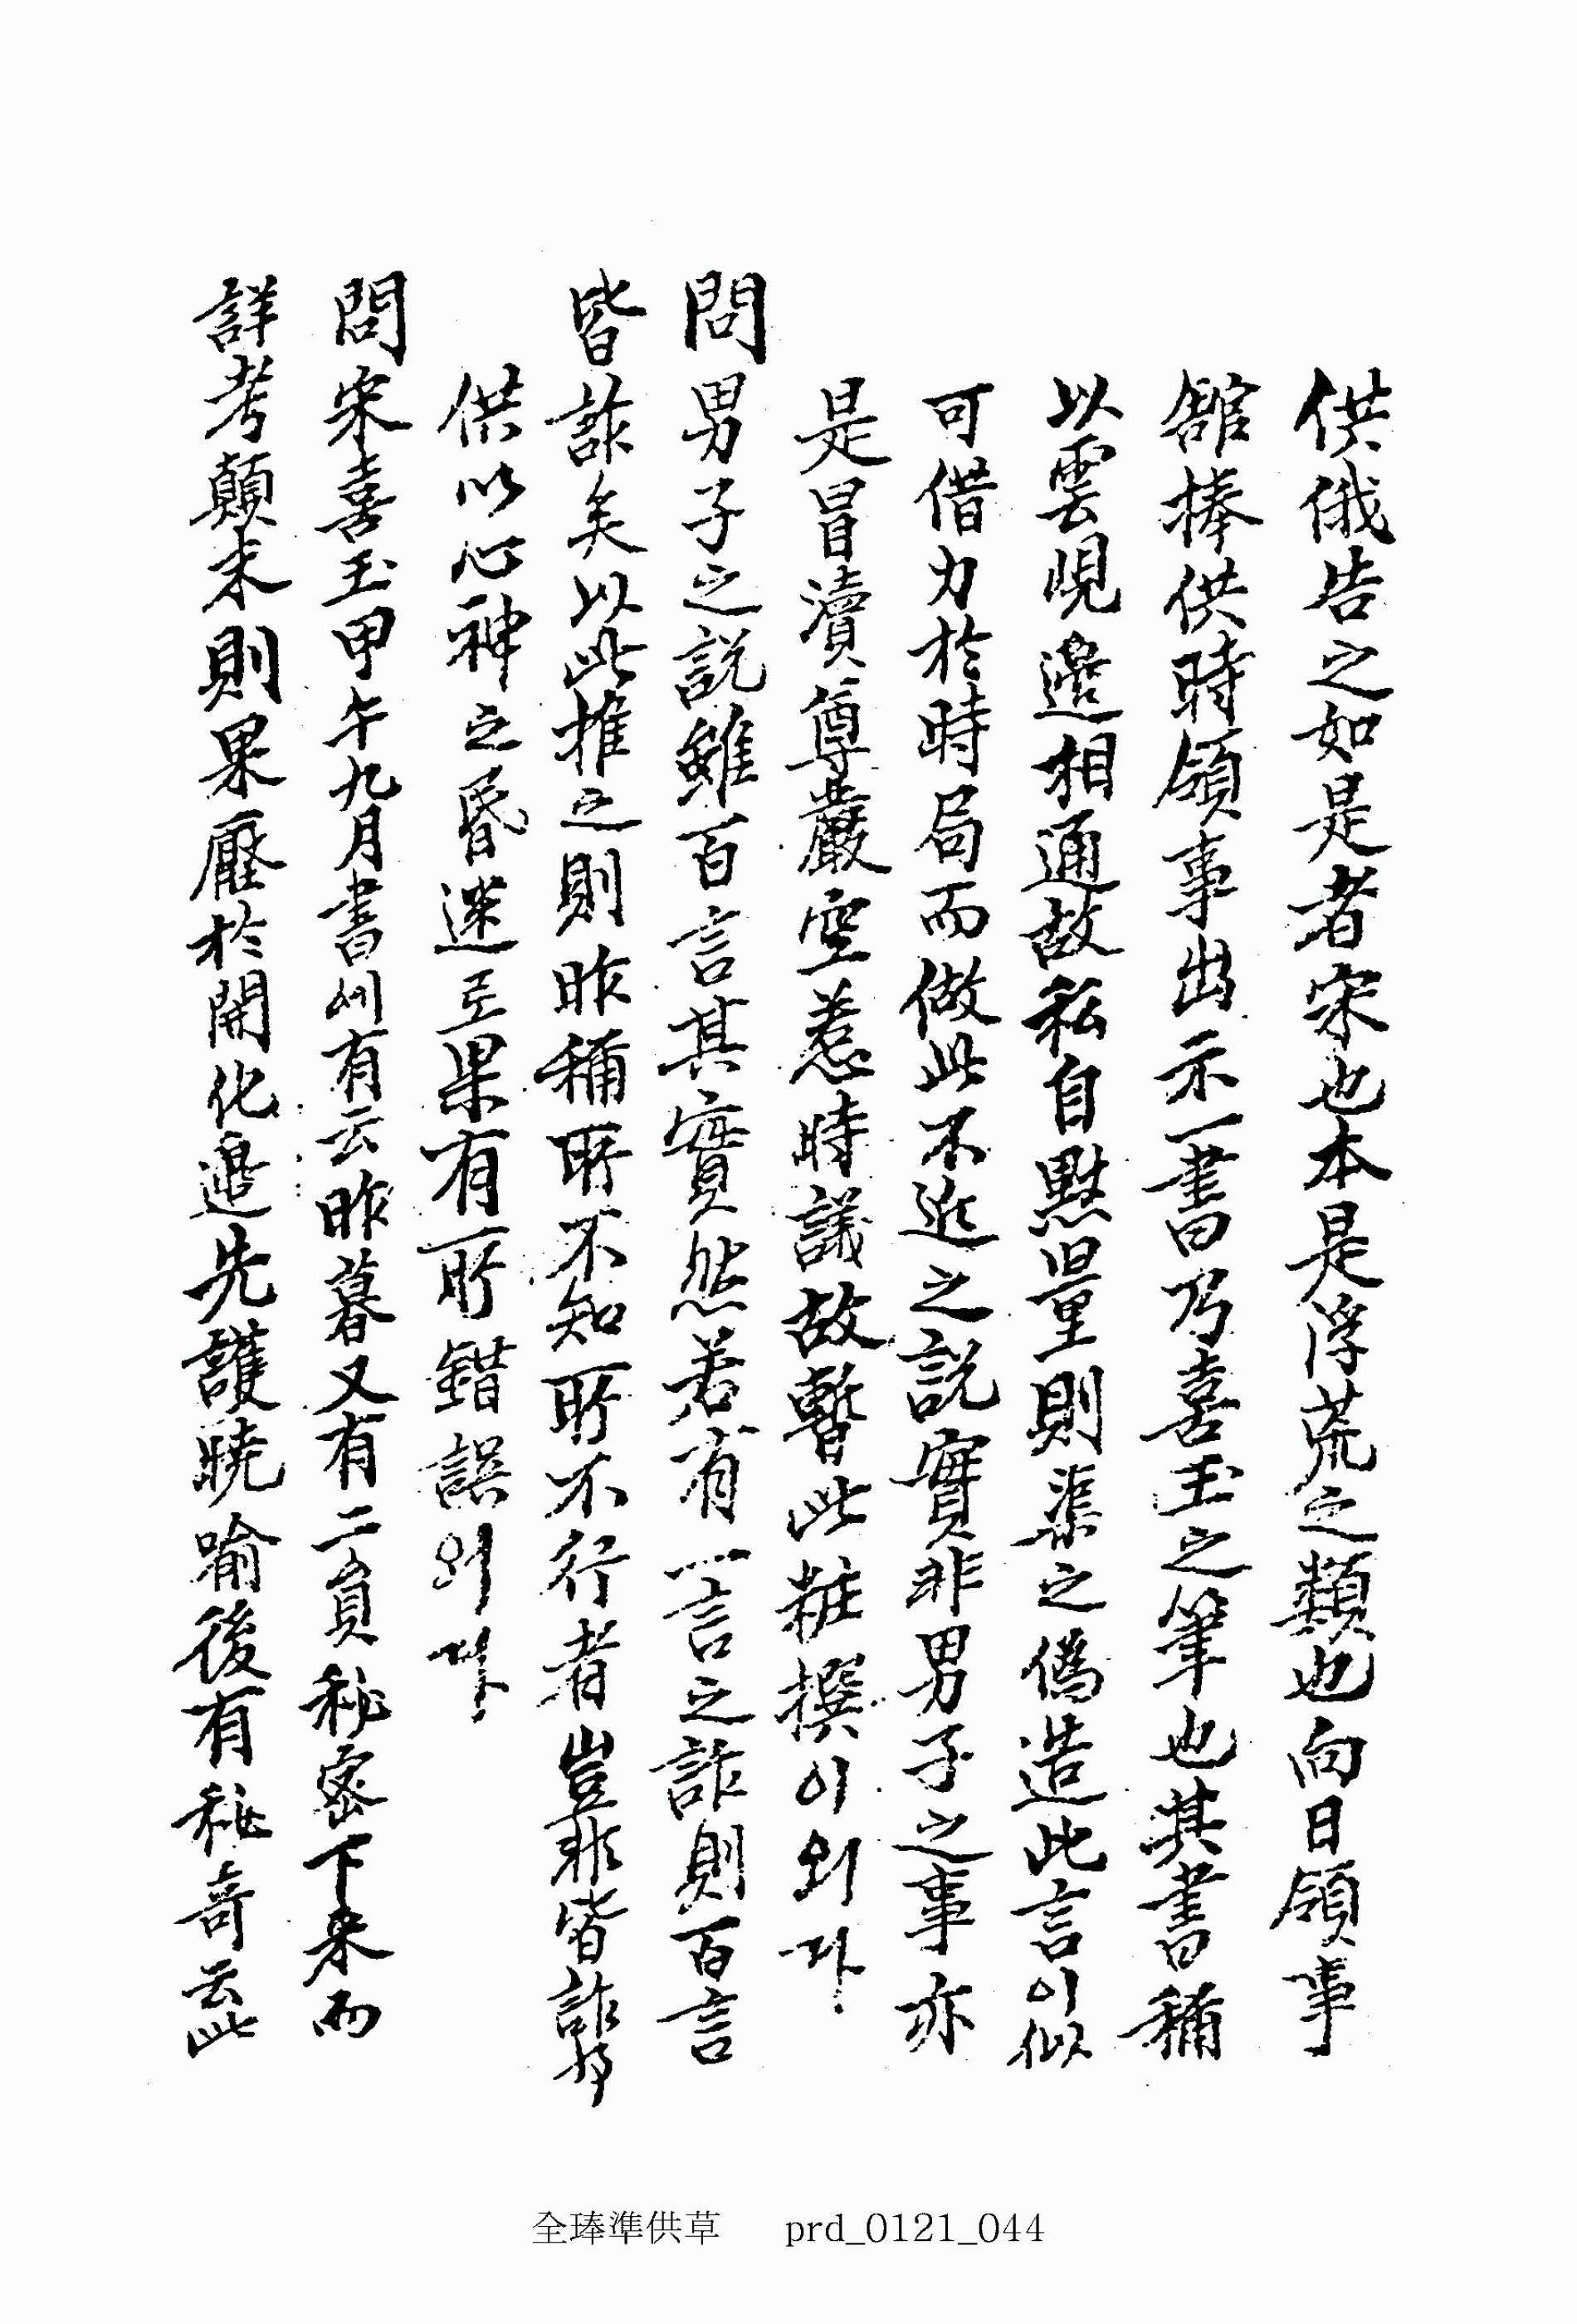 供俄告之如是者宋也本是浮荒之類也向日領事
舘捧供時領事出示一書乃喜玉之筆也其書稱
以雲峴邊相通故私自黙量則渠之僞造此言이似
可借力於時局而做此不近之說實非男子之事亦
是冒瀆尊嚴空惹時議故暫此粧撰이외다
問男子之說雖百言其實然若有一言之詐則百言
皆詐矣以此推之則昨稱所不知所不行者豈非皆詐乎
供以心神之昏迷로果有所錯誤외다
問宋喜玉甲午九月書에有云昨暮又有二員秘密下來而
詳考顚末則果壓於開化邊先護曉喩後有秘奇云此
全琫準供草 prd_0121_044